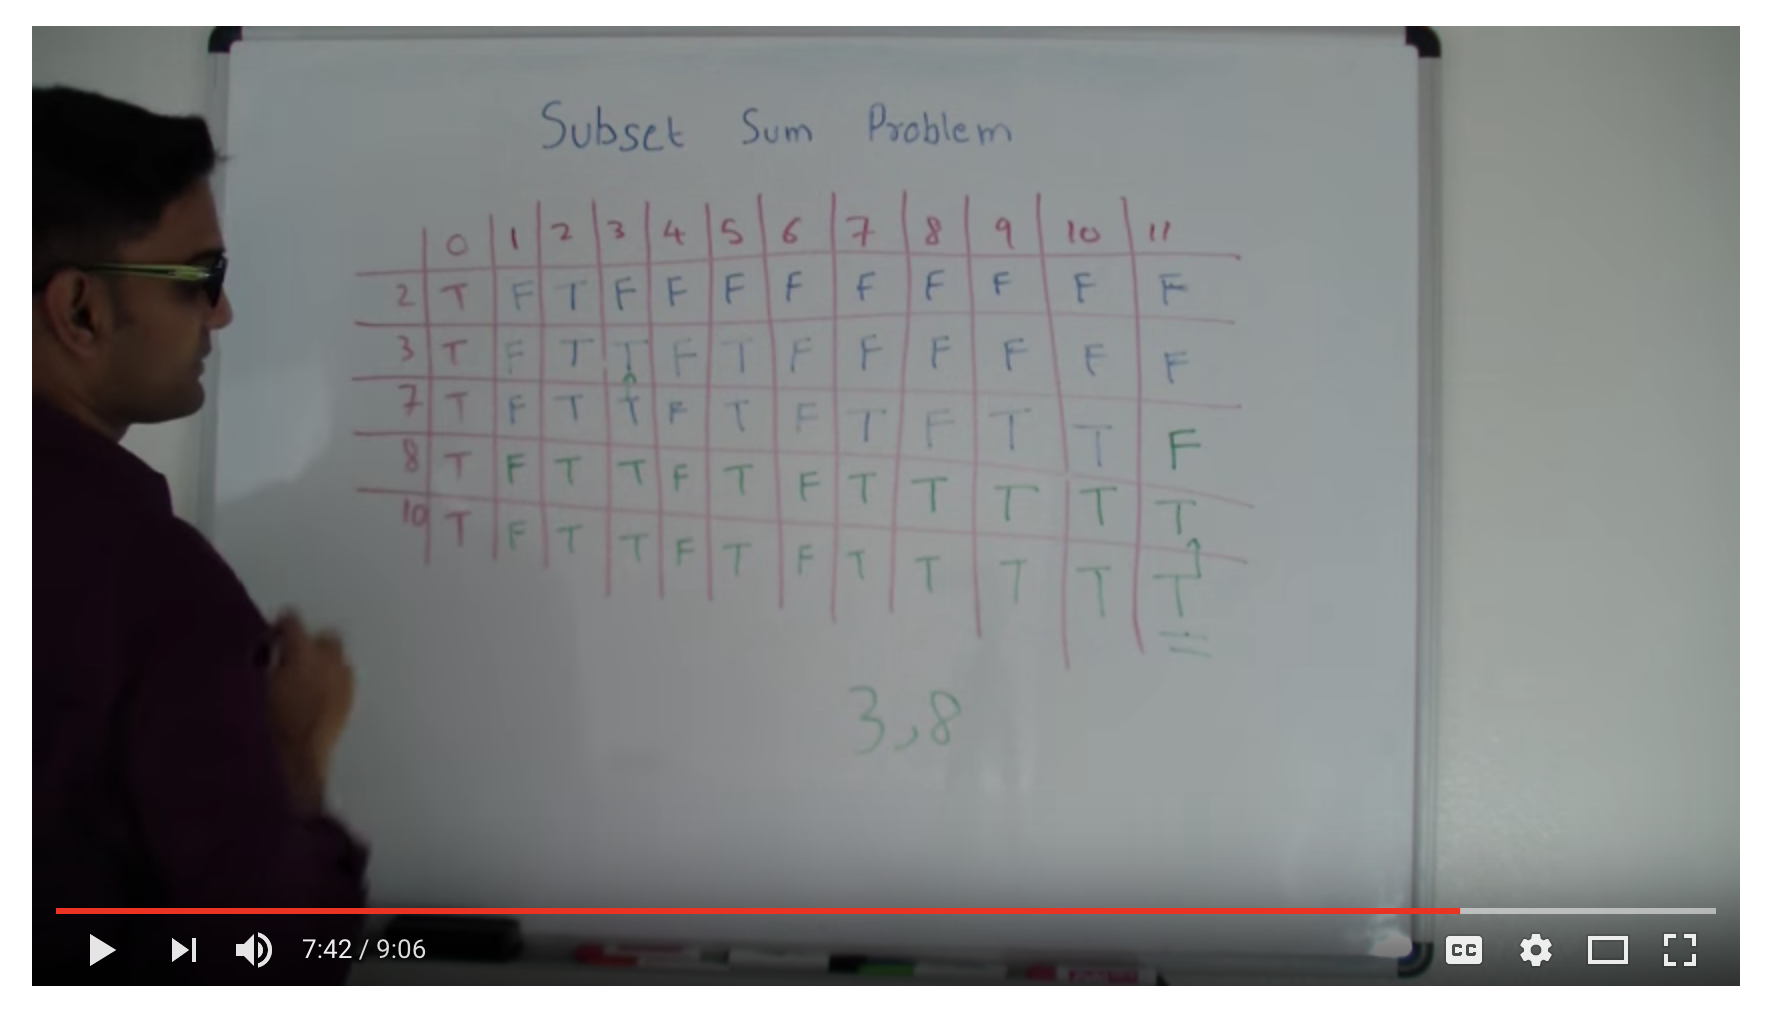 Subset Sum Problem
0 1 2 3 4 5 6 7 8 9 10 11
2 T F T F F F F F F F F F
3 T F T T F T F F F F F F
7 T F T T F T F T F T T F
8 T F T T F T F T T T T T
10 T F T T F T F T T T T T
3,8
7:42 / 9:06
CC